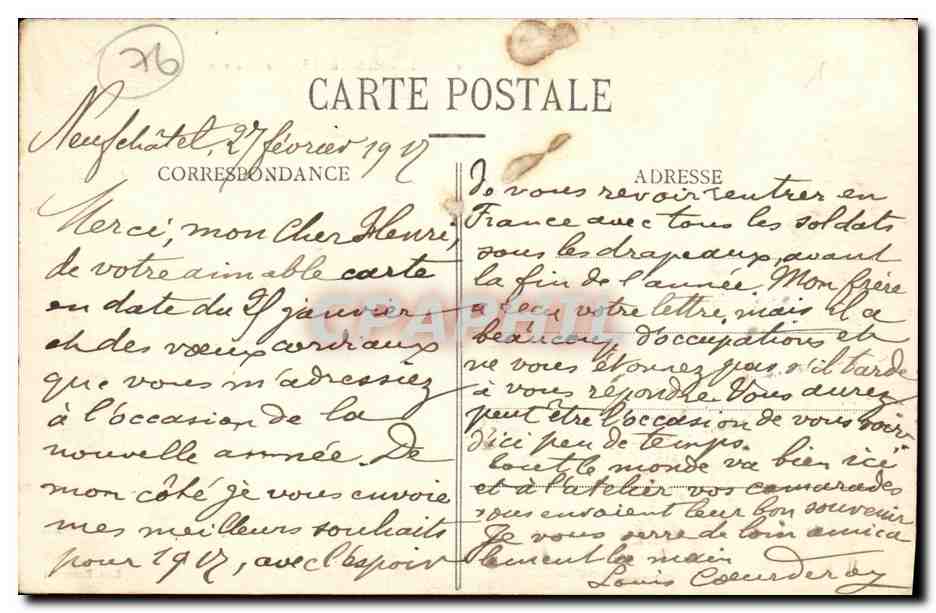 CARTE POSTALE
Neufchâtel, 27 février 1917
CORRESPONDANCE
Merci, mon cher Henri,
de votre aimable carte
en date du 25 janvier
et des vœux cordiaux
que vous m'adressiez
à l'occasion de la
nouvelle année. De
mon côté je vous envoie
mes meilleurs souhaits
pour 1917, avec l'espoir
ADRESSE
de vous revoir rentrer en
France avec tous les soldats
sous les drapeaux, avant
la fin de l'année. Mon frère
a reçu votre lettre, mais il a
beaucoup d'occupations et
ne vous étonnez pas s'il tarde
à vous répondre. Vous aurez
peut être l'occasion de vous voir
d'ici peu de temps.
Tout le monde va bien ici
et à l'atelier vos camarades
vous envoient leur bon souvenir
Je vous serre de loin amica
lement la main
Louis Cœurderoy
CPAPHIL